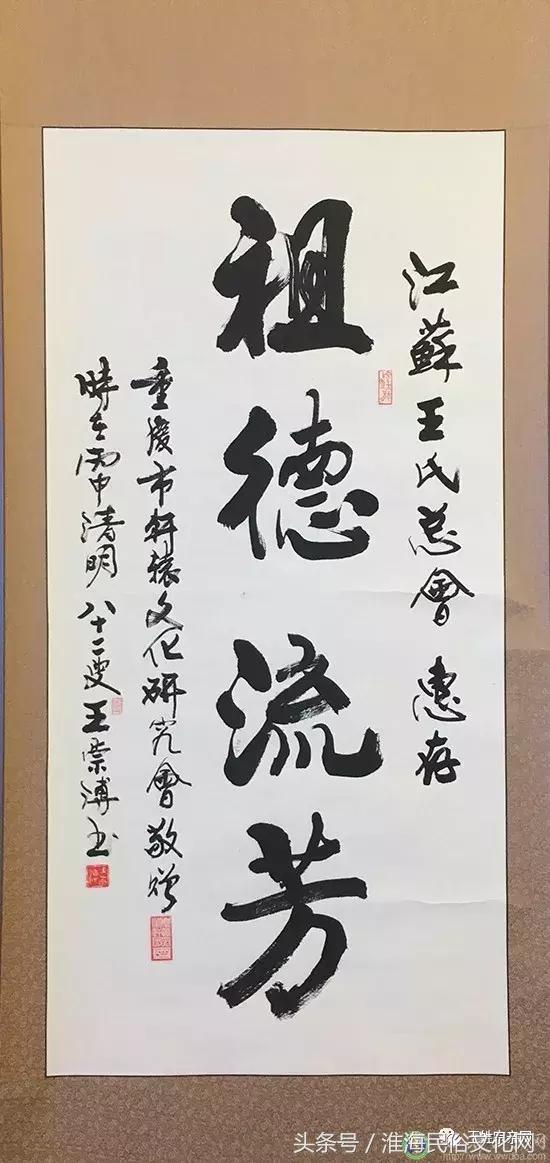 江蘇王氏总會 惠存
祖德流芳
重慶市軒轅文化研究會敬贈
時在丙申清明 八十二叟王崇溥书
头条号／淮海民俗文化网